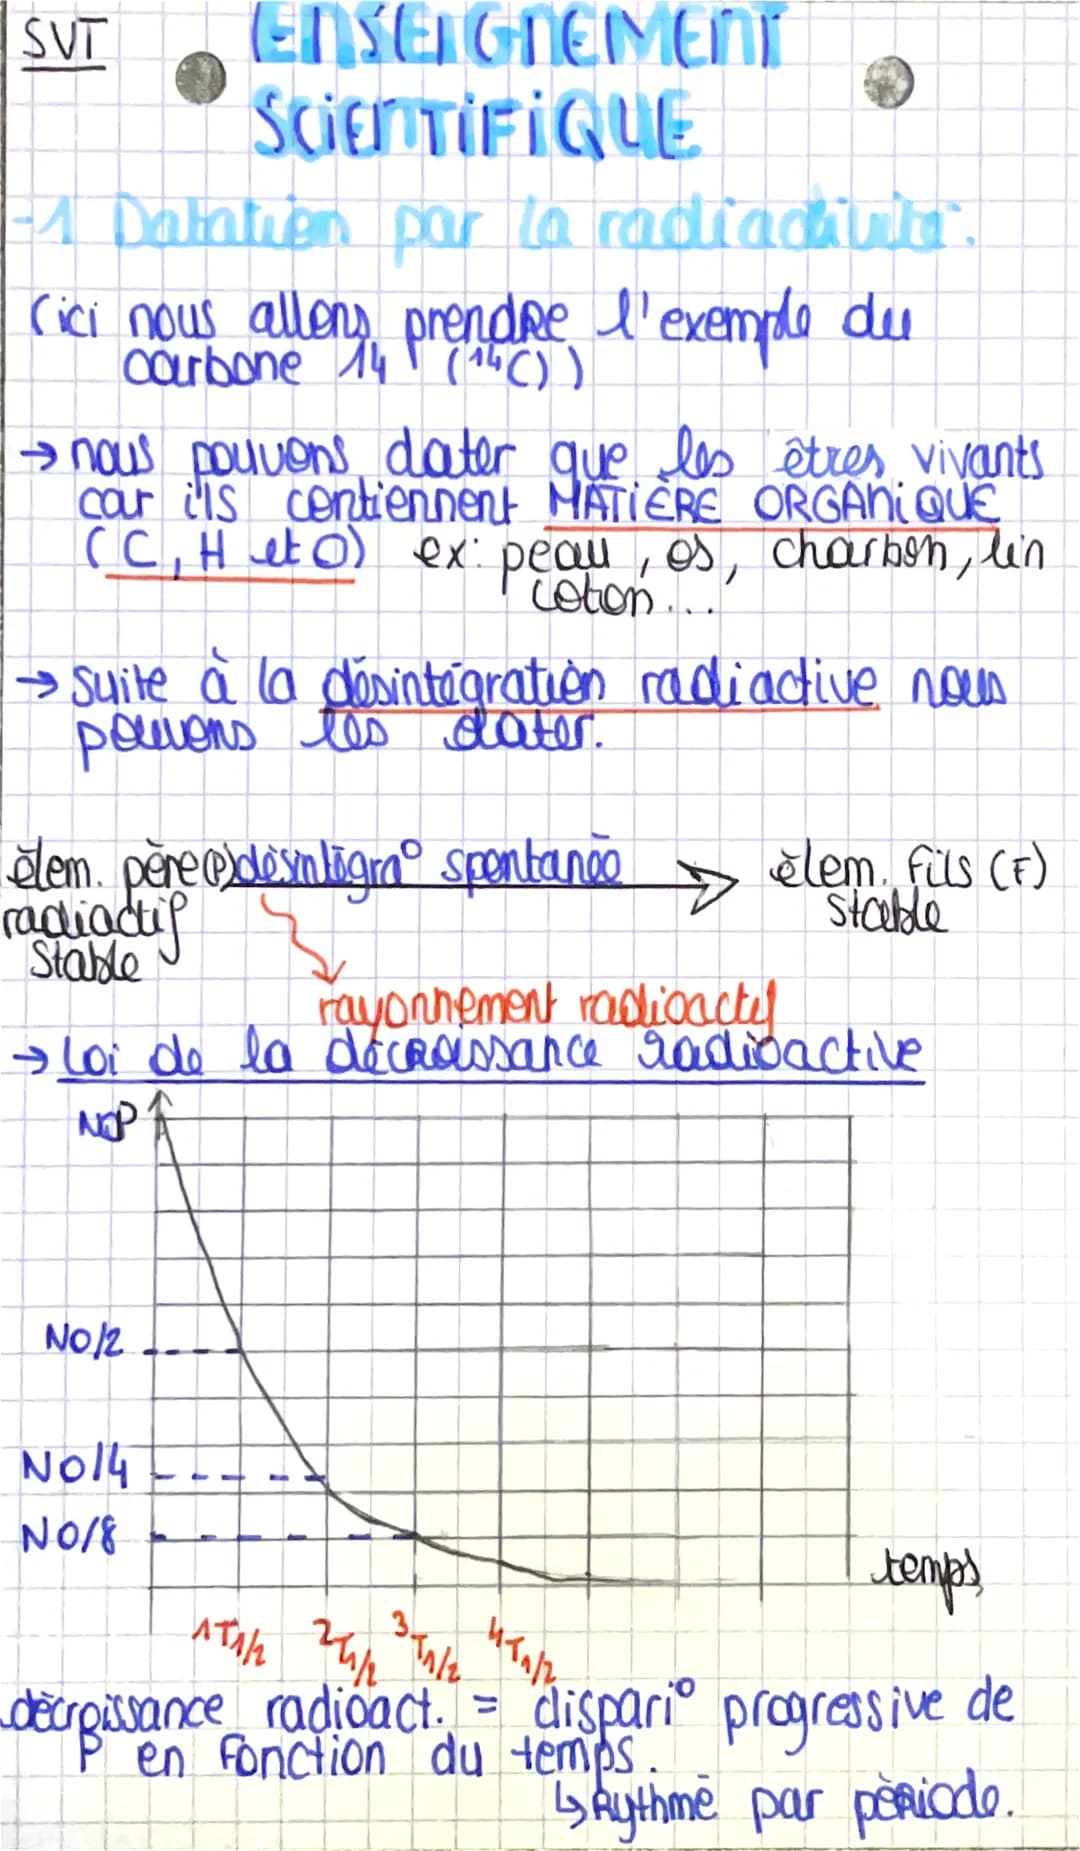 SVT
ENSEIGNEMENT
SCIENTIFIQUE
-1 Datation par la radiactivité.
(ici nous allons prendre l'exemple du
carbone 14 (¹⁴C))
→ nous pouvons dater que les êtres vivants
car ils contiennent MATIÈRE ORGANIQUE
(C, H et O) ex: peau, os, charbon, lin
coton...
→ suite à la désintégration radiactive nous
pouvons les dater.
élem. père (P) désintégra° spontanée élem. fils (F)
radiactif stable
stable
rayonnement radioactif
→ Loi de la décroissance radioactive
P
NO/2
NO/4
NO/8
temps
1T1/2 2T1/2 3T1/2 4T1/2
décroissance radioact. = dispari° progressive de
P en fonction du temps.
↳ Rythmé par période.